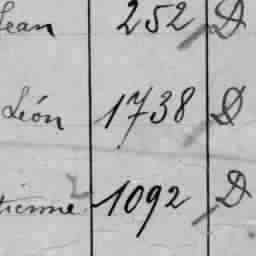 Jean 252 D
León 1738 D
tienne 1092 D